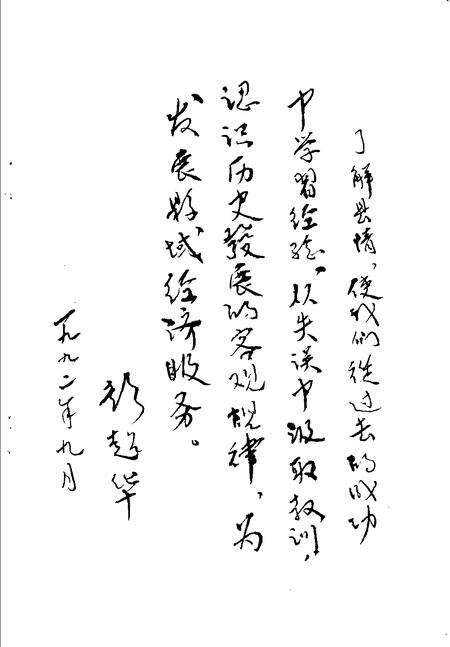 了解县情，使我们从过去的成功
中学习经验，从失误中汲取教训，
认识历史發展的客观规律，为
发展县域经济服务。
超华
一九九二年九月